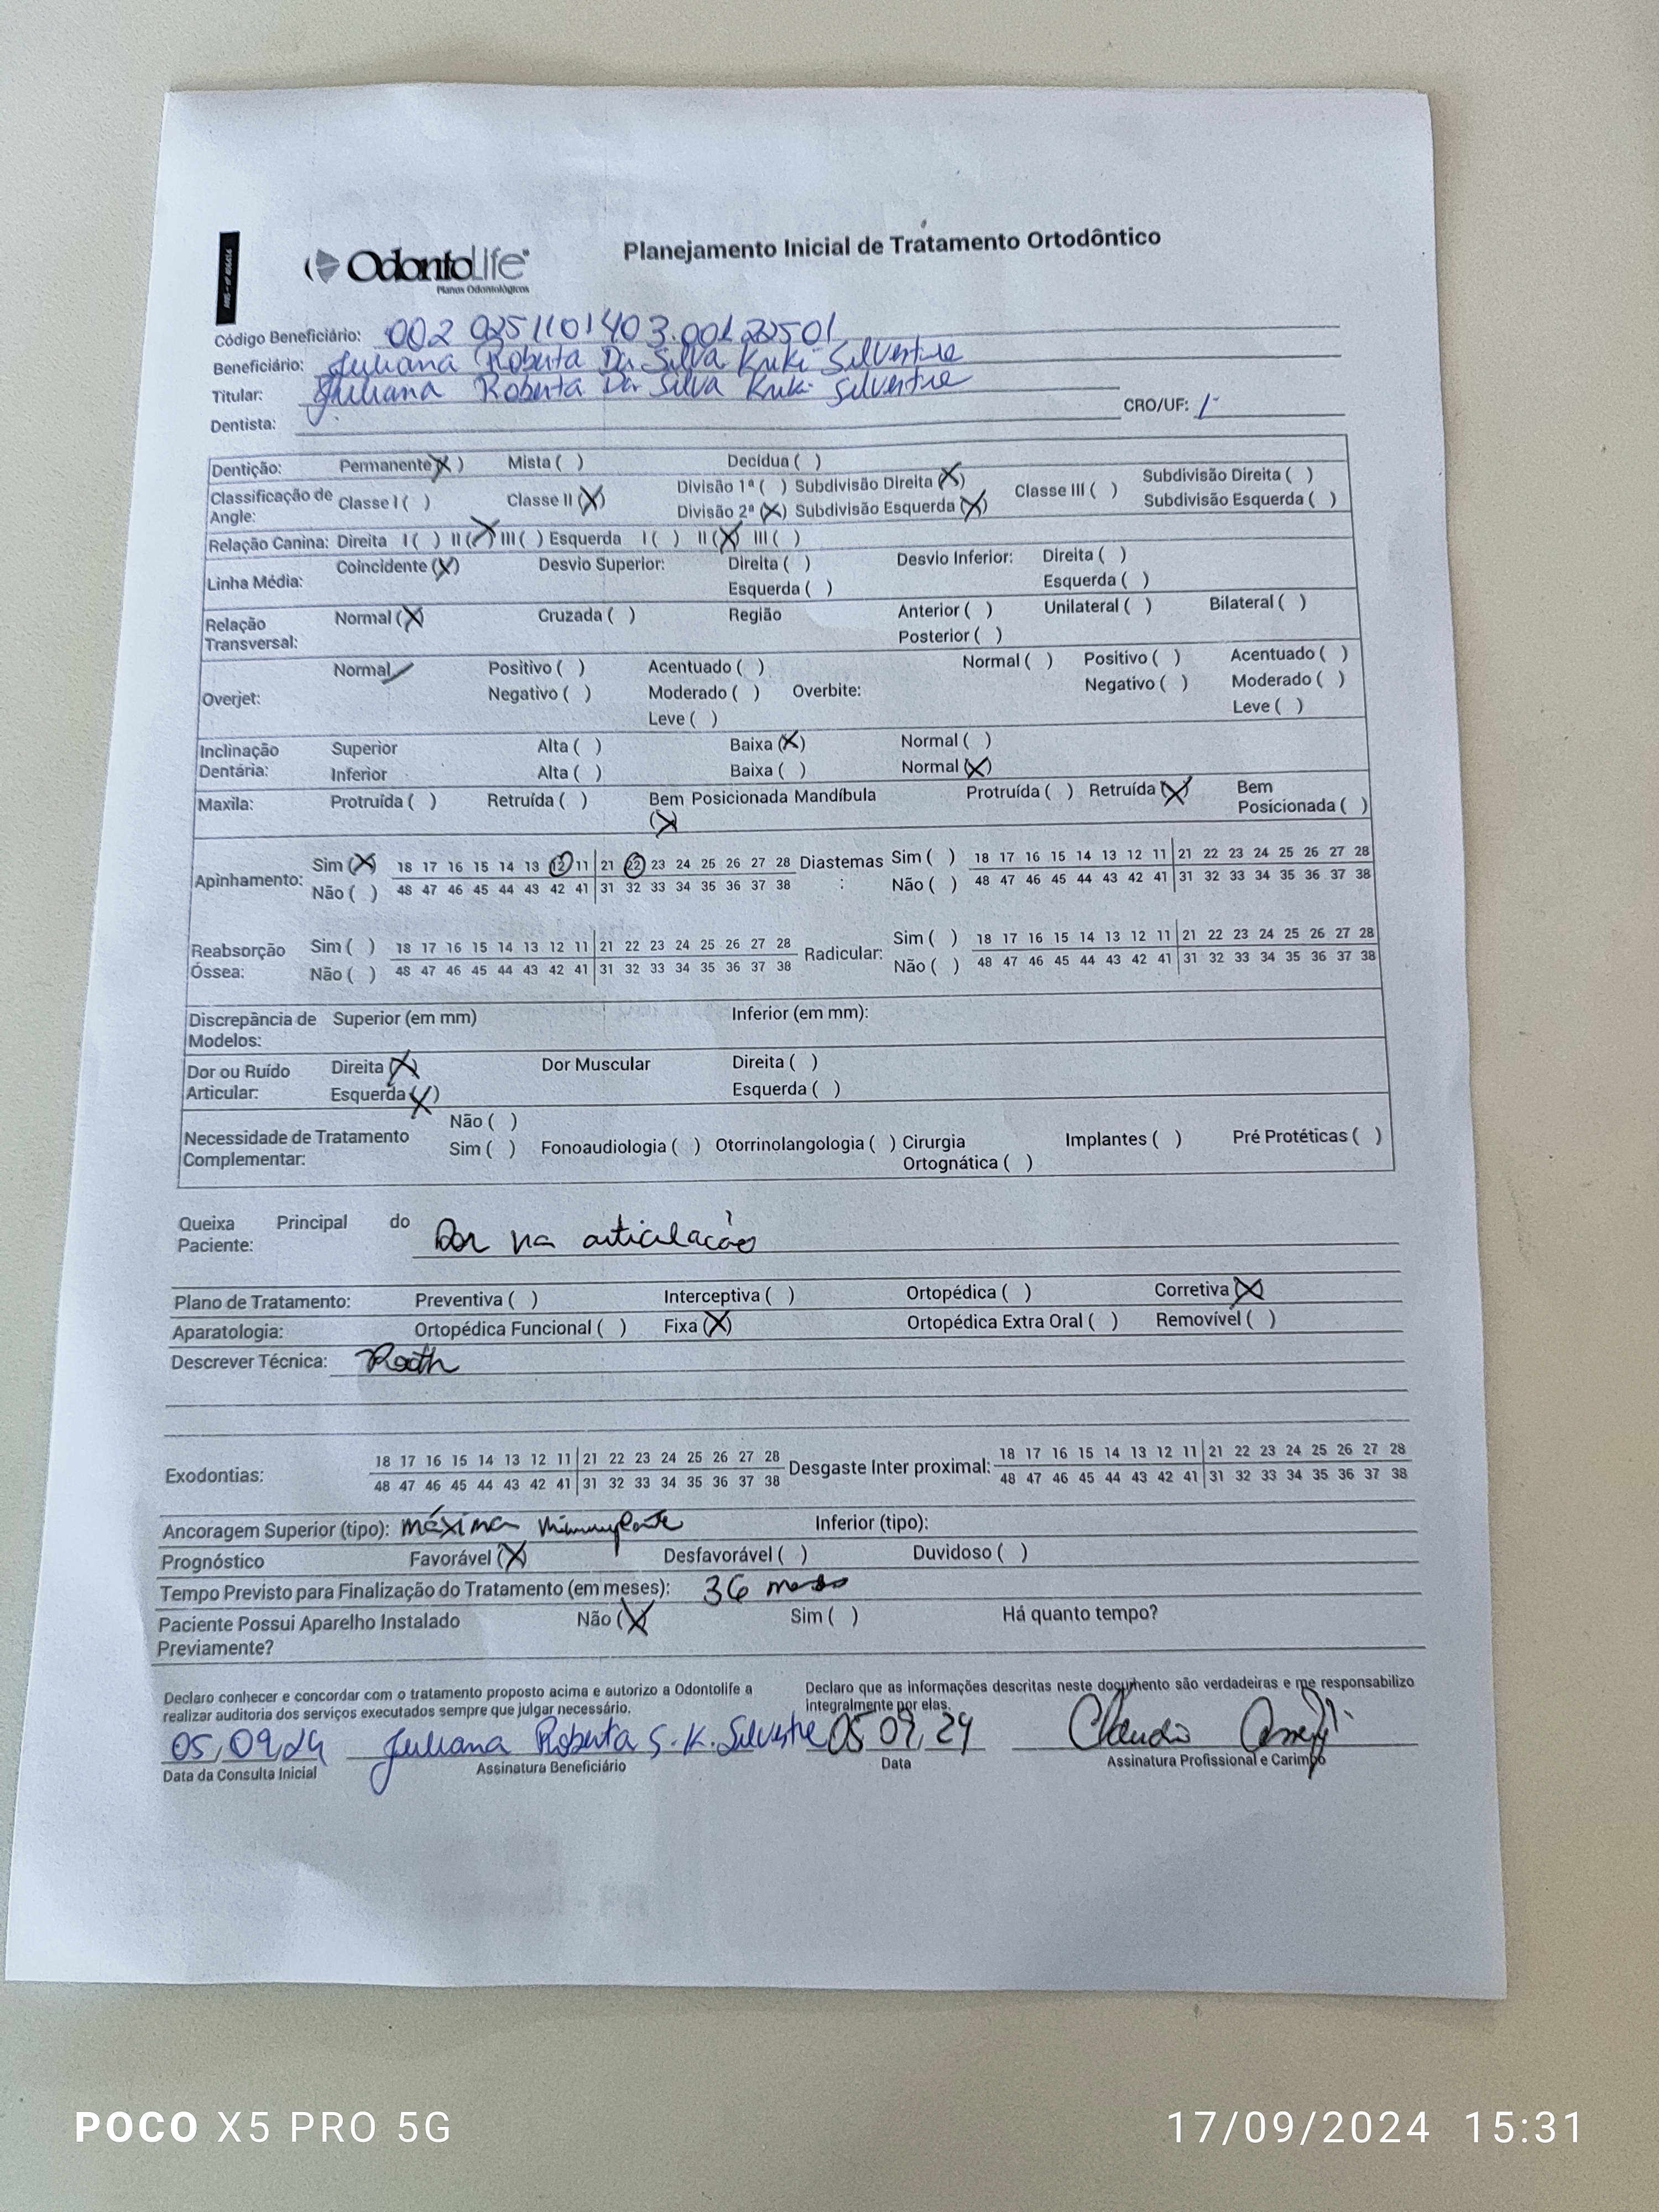 ANS - nº 406414
OdontoLife®
Planos Odontológicos
Planejamento Inicial de Tratamento Ortodôntico
Código Beneficiário: 002 0251101403.001
Beneficiário: Juliana Roberta Da Silva Kruki Silvestre
Titular: Juliana Roberta Da Silva Kruki Silvestre
Dentista: CRO/UF:
Dentição: Permanente (X) Mista ( ) Decídua ( )
Classificação de Angle: Classe I ( ) Classe II (X) Divisão 1ª ( ) Subdivisão Direita (X) Classe III ( ) Subdivisão Direita ( )
Divisão 2ª (X) Subdivisão Esquerda (X) Subdivisão Esquerda ( )
Relação Canina: Direita I ( ) II (X) III ( ) Esquerda I ( ) II (X) III ( )
Linha Média: Coincidente (X) Desvio Superior: Direita ( ) Desvio Inferior: Direita ( )
Esquerda ( ) Esquerda ( )
Relação Transversal: Normal (X) Cruzada ( ) Região Anterior ( ) Unilateral ( ) Bilateral ( )
Posterior ( )
Overjet: Normal Positivo ( ) Acentuado ( ) Overbite: Normal ( ) Positivo ( ) Acentuado ( )
Negativo ( ) Moderado ( ) Negativo ( ) Moderado ( )
Leve ( ) Leve ( )
Inclinação Dentária: Superior Alta ( ) Baixa (X) Normal ( )
Inferior Alta ( ) Baixa ( ) Normal (X)
Maxila: Protruída ( ) Retruída ( ) Bem Posicionada (X) Mandíbula Protruída ( ) Retruída (X) Bem Posicionada ( )
Apinhamento: Sim (X) 18 17 16 15 14 13 12 11 21 22 23 24 25 26 27 28 Diastemas: Sim ( ) 18 17 16 15 14 13 12 11 21 22 23 24 25 26 27 28
Não ( ) 48 47 46 45 44 43 42 41 31 32 33 34 35 36 37 38 Não ( ) 48 47 46 45 44 43 42 41 31 32 33 34 35 36 37 38
Reabsorção Óssea: Sim ( ) 18 17 16 15 14 13 12 11 21 22 23 24 25 26 27 28 Radicular: Sim ( ) 18 17 16 15 14 13 12 11 21 22 23 24 25 26 27 28
Não ( ) 48 47 46 45 44 43 42 41 31 32 33 34 35 36 37 38 Não ( ) 48 47 46 45 44 43 42 41 31 32 33 34 35 36 37 38
Discrepância de Modelos: Superior (em mm) Inferior (em mm):
Dor ou Ruído Articular: Direita (X) Dor Muscular Direita ( )
Esquerda (X) Esquerda ( )
Necessidade de Tratamento Complementar: Não ( )
Sim ( ) Fonoaudiologia ( ) Otorrinolangologia ( ) Cirurgia Ortognática ( ) Implantes ( ) Pré Protéticas ( )
Queixa Principal do Paciente: Dor na articulação
Plano de Tratamento: Preventiva ( ) Interceptiva ( ) Ortopédica ( ) Corretiva (X)
Aparatologia: Ortopédica Funcional ( ) Fixa (X) Ortopédica Extra Oral ( ) Removível ( )
Descrever Técnica: Roth
Exodontias: 18 17 16 15 14 13 12 11 21 22 23 24 25 26 27 28 Desgaste Inter proximal: 18 17 16 15 14 13 12 11 21 22 23 24 25 26 27 28
48 47 46 45 44 43 42 41 31 32 33 34 35 36 37 38 48 47 46 45 44 43 42 41 31 32 33 34 35 36 37 38
Ancoragem Superior (tipo): máxima Inferior (tipo):
Prognóstico Favorável (X) Desfavorável ( ) Duvidoso ( )
Tempo Previsto para Finalização do Tratamento (em meses): 36 meses
Paciente Possui Aparelho Instalado Previamente? Não (X) Sim ( ) Há quanto tempo?
Declaro conhecer e concordar com o tratamento proposto acima e autorizo a Odontolife a
realizar auditoria dos serviços executados sempre que julgar necessário.
Declaro que as informações descritas neste documento são verdadeiras e me responsabilizo
integralmente por elas.
05,09,24 Juliana Roberta S. K. Silvestre 05 09, 24 Claudio
Data da Consulta Inicial Assinatura Beneficiário Data Assinatura Profissional e Carimbo
POCO X5 PRO 5G 17/09/2024 15:31